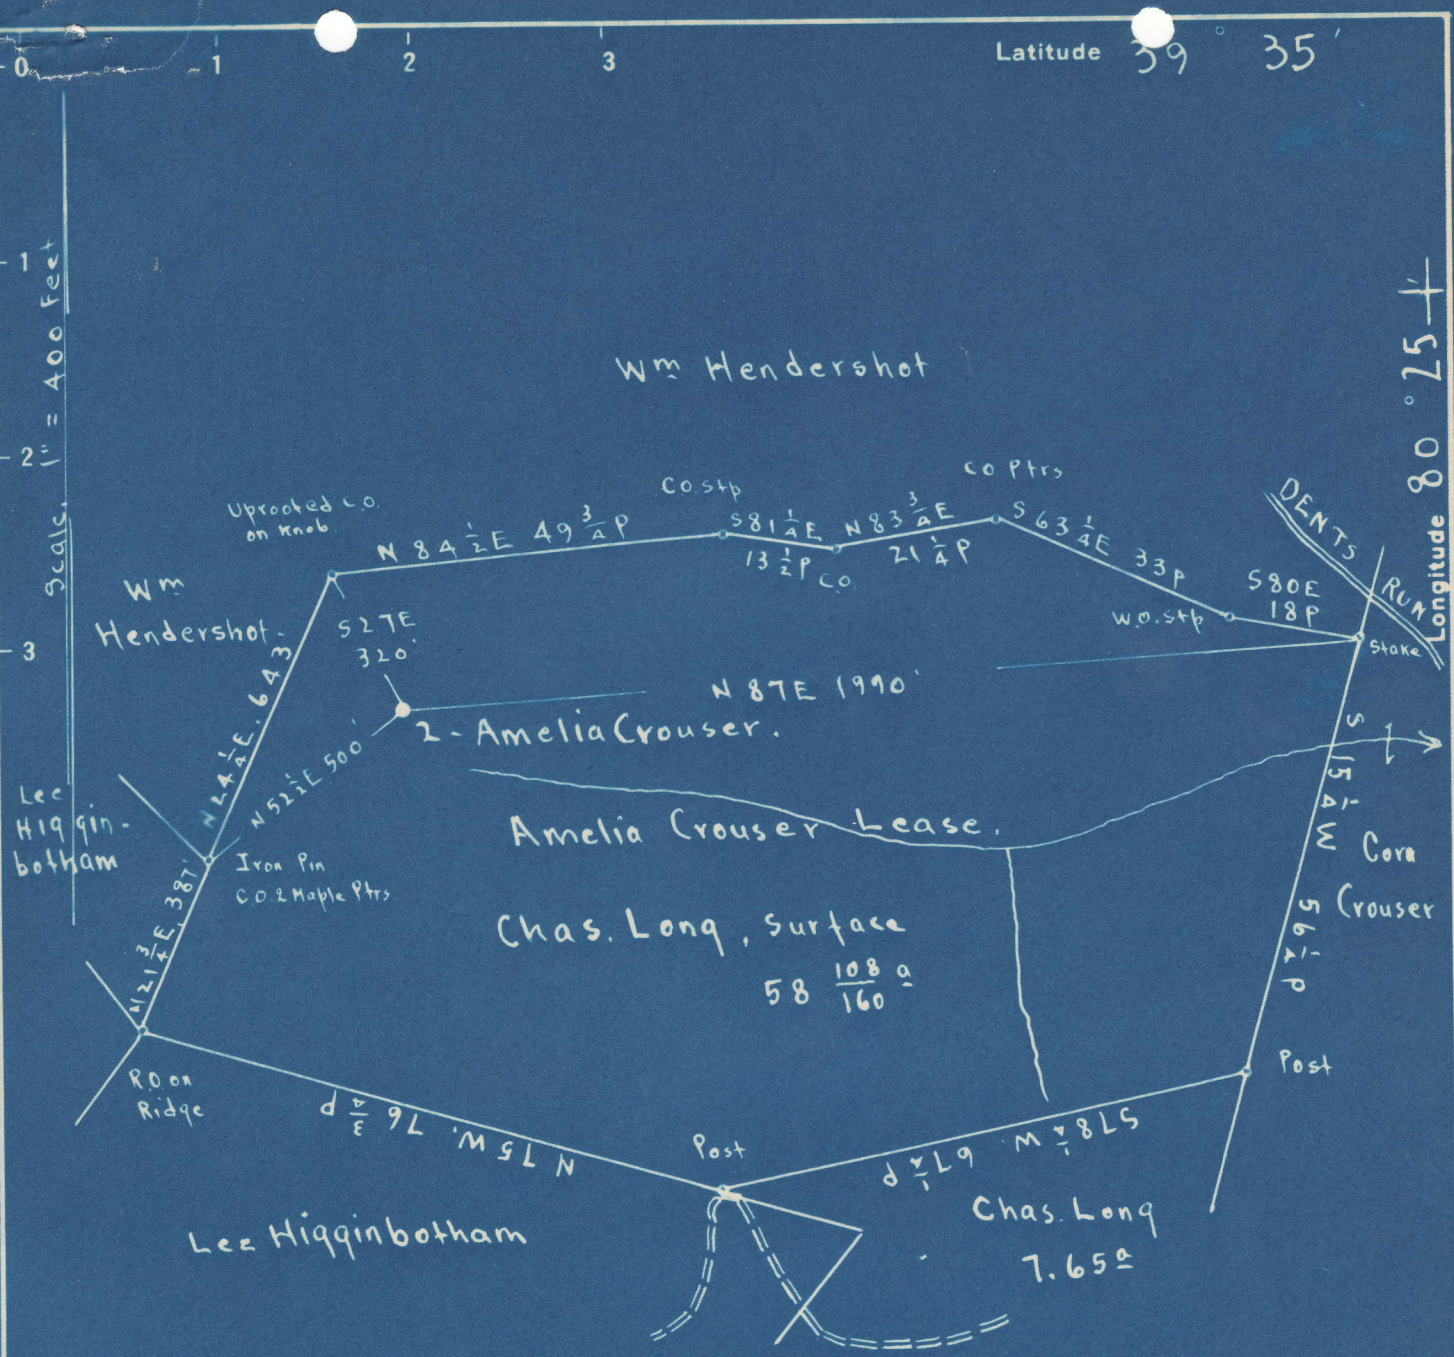 0 1 2 3
Latitude 39° 35'
1
2
3
Scale. 1" = 400 Feet
Longitude 80° 25'
Wm Hendershot
Uprooted C.O.
on Knob.
CO. Stp
CO Ptrs
N 84 1/2 E 49 3/4 P
S 81 1/4 E
13 1/2 P
C.O.
N 83 3/4 E
21 1/4 P
S 63 1/4 E 33P
W.O. Stp
S80E
18P
DENTS RUN
Stake
Wm
Hendershot.
S27E
320'
N 24 1/4 E, 643
N 87E 1990'
2 - Amelia Crouser.
N 52 1/2 E 500'
Lee
Higgin-
botham
Iron Pin
C.O. & Maple Ptrs
N 21 3/4 E, 387'
Amelia Crouser Lease.
Chas. Long, Surface
58 108/160 a
S 15 1/4 W 56 1/4 P
Cora
Crouser
R.O. on
Ridge
N 75 W. 76 3/4 P
Post
S 78 1/4 W. 67 1/4 P
Post
Lee Higginbotham
Chas. Long
7.65 a